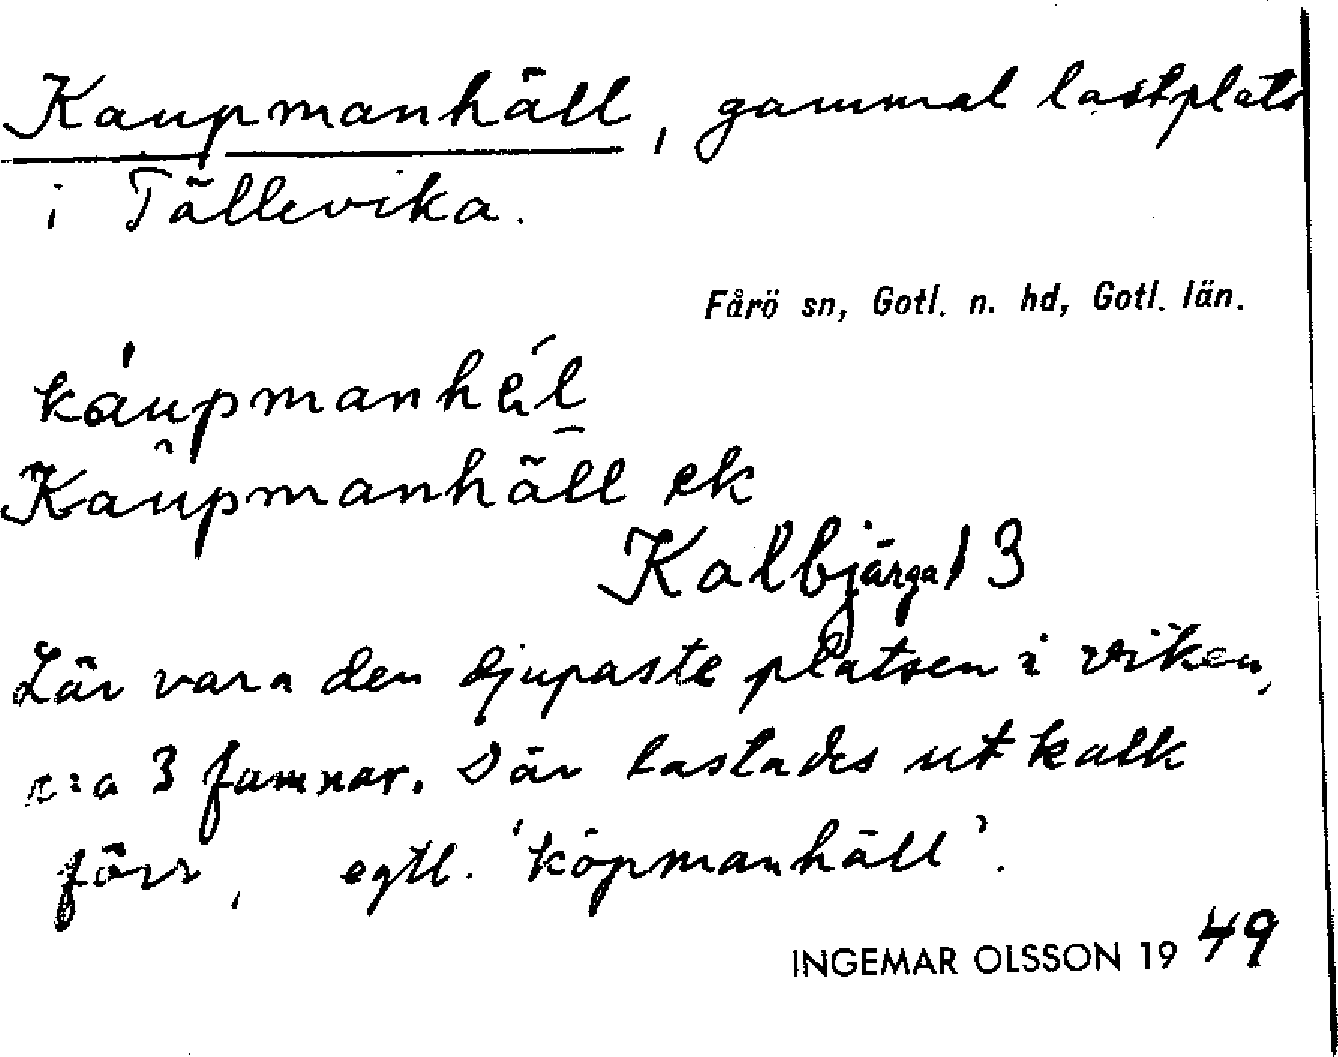 Kaupmanhäll, gammal lastplats
i Tällevika.
Fårö sn, Gotl. n. hd, Gotl. län.
Kaupmanhäll ek
Kalbjärga 13
Lär vara den djupaste platsen i viken,
c:a 3 famnar. Där lastades ut kalk
förr, egtl. 'köpmanhäll'.
INGEMAR OLSSON 1949